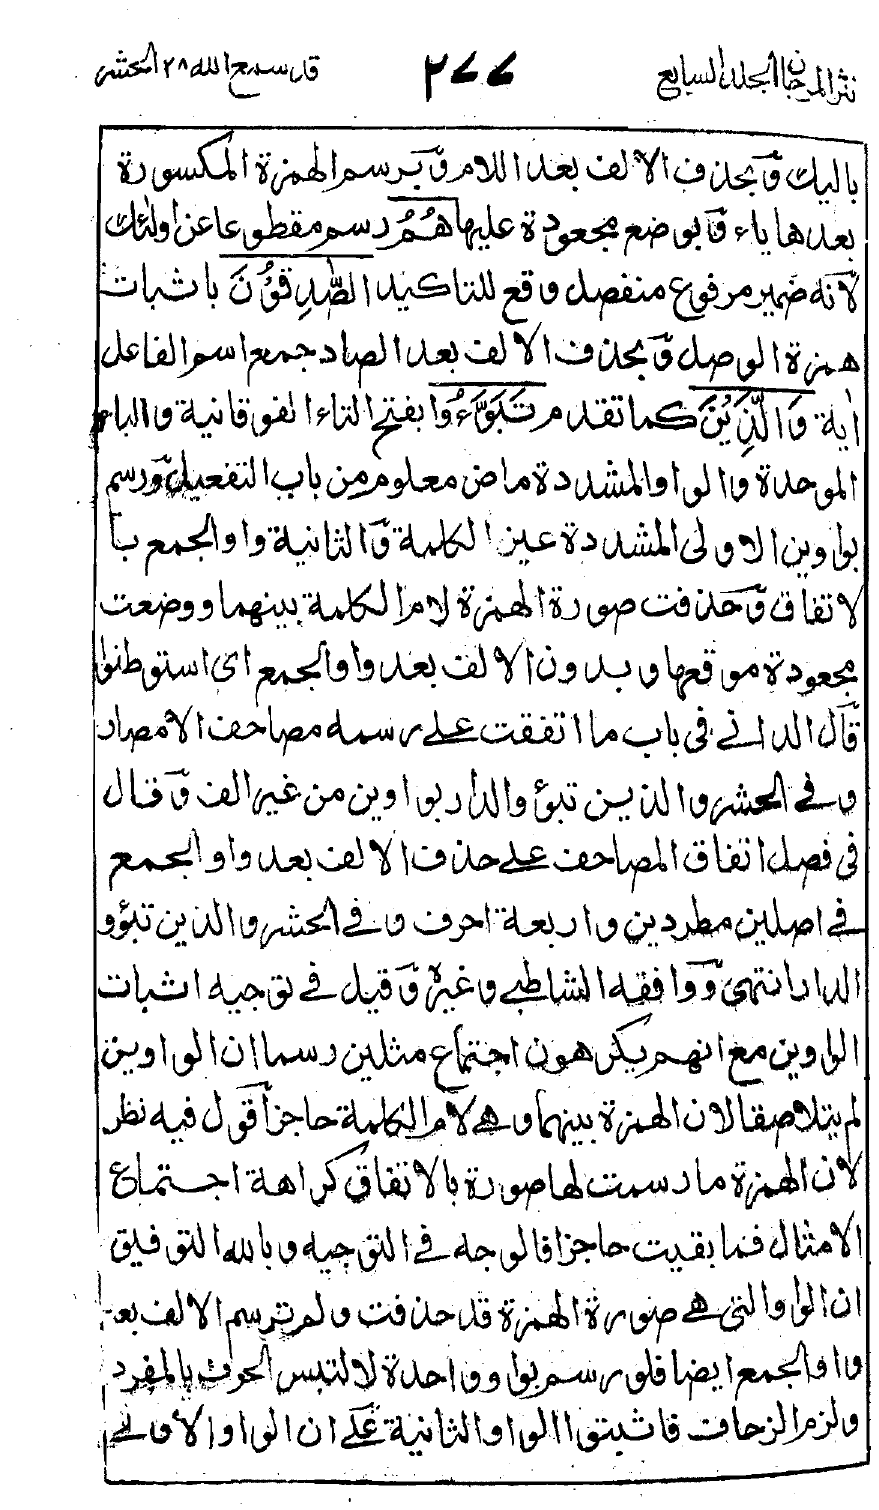 نثر المرجان الجلد السابع ٢٧٧ قد سمع الله ٢٨ الحشر
بالیك وَبحذف الالف بعد اللام وَبرسم الهمزة المکسورة
بعدها ياء وَبوضع مجعودة عليها هُمُ رسم مقطوعا عن اولئك
لاَنه ضمير مرفوع منفصل وقع للتاكيد الصّٰدِقُوْنَ باثبات
همزة الوصل وَبحذف الالف بعد الصاد جمع اسم الفاعل
اٰية وَالَّذِيْنَ كما تقدم تَبَوَّءُوا بفتح التاء الفوقانية والباء
الموحدة والواو المشددة ماض معلوم من باب التفعيل وَرسم
بواوين الاولى المشددة عين الكلمة وَالثانية واو الجمع با
لاتفاق وَحذفت صورة الهمزة لام الكلمة بينهما ووضعت
مجعودة موقعها وبدون الالف بعد واو الجمع اى استوطنوا
قاَل الدانے فى باب ما اتفقت علے رسمه مصاحف الامصار
وفے الحشر والذين تبؤو الدار بواوين من غير الف وَقال
فى فصل اتفاق المصاحف علے حذف الالف بعد واو الجمع
فے اصلين مطردين واربعة احرف وفے الحشر والذين تبؤو
الدار انتهى وَوافقه الشاطبے وغيرہ وَقيل فے توجيه اثبات
الواوين مع انهم يكرهون اجتماع مثلين رسما ان الواوين
لم يتلاصقا لان الهمزة بينهما وهے لام الكلمة حاجز اَقول فيه نظر
لان الهمزة ما رسمت لها صورة بالاتفاق كراهة اجتماع
الامثال فما بقيت حاجزا فالوجه فے التوجيه وبالله التوفيق
ان الواو التى هے صورة الهمزة قد حذفت ولم ترسم الالف بعد
واو الجمع ايضا فلو رسم بواو واحدة لالتبس الحرف بالمفرد
ولزم الزحاف فاثبتوا الواو الثانية علے ان الواو الاولے